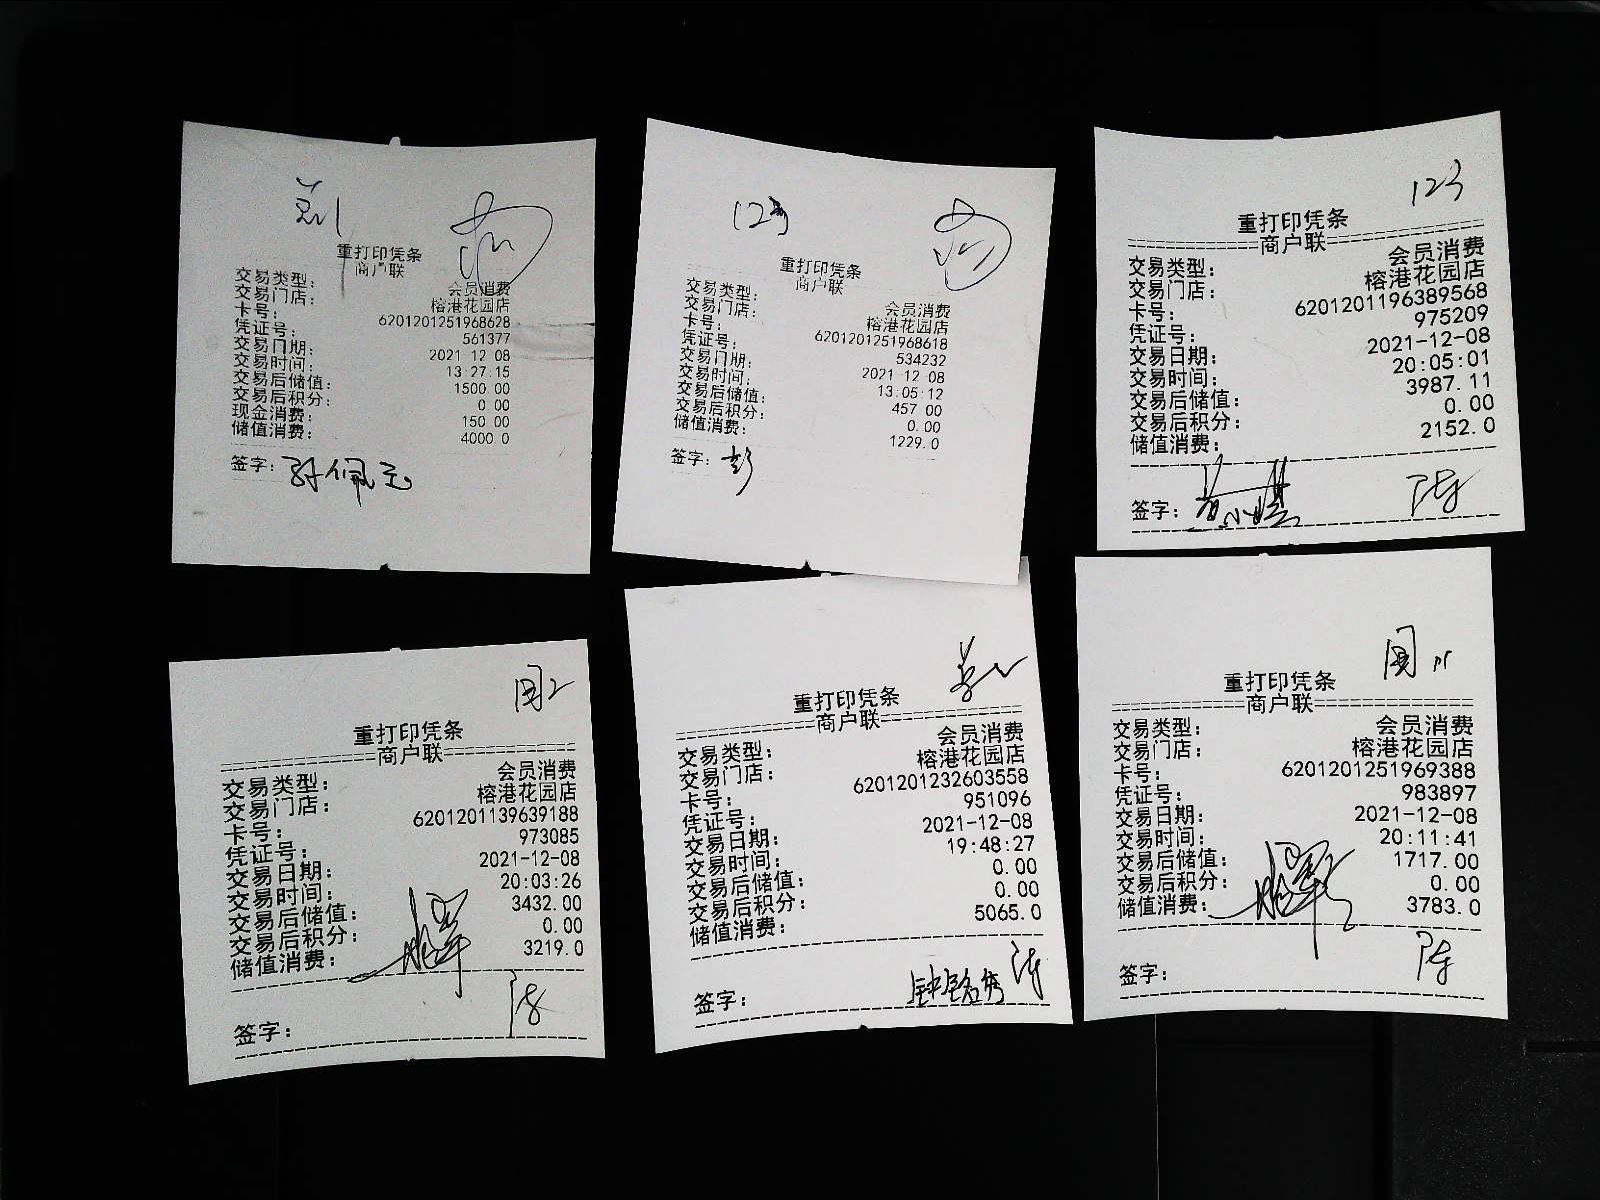 重打印凭条
商户联
交易类型： 会员消费
交易门店： 榕港花园店
卡号： 6201201251968628
凭证号： 561377
交易日期： 2021 12 08
交易时间： 13 27 15
交易后储值： 1500 00
交易后积分： 0 00
现金消费： 150 00
储值消费： 4000 0
签字： 孙佩玉
123
重打印凭条
商户联
交易类型： 会员消费
交易门店： 榕港花园店
卡号： 6201201251968618
凭证号： 534232
交易日期： 2021 12 08
交易时间： 13:05:12
交易后储值： 457 00
交易后积分： 0.00
储值消费： 1229.0
签字： 彭
123
重打印凭条
商户联
交易类型： 会员消费
交易门店： 榕港花园店
卡号： 6201201196389568
凭证号： 975209
交易日期： 2021-12-08
交易时间： 20:05:01
交易后储值： 3987.11
交易后积分： 0.00
储值消费： 2152.0
签字： 陈
重打印凭条
商户联
交易类型： 会员消费
交易门店： 榕港花园店
卡号： 6201201139639188
凭证号： 973085
交易日期： 2021-12-08
交易时间： 20:03:26
交易后储值： 3432.00
交易后积分： 0.00
储值消费： 3219.0
签字：
重打印凭条
商户联
交易类型： 会员消费
交易门店： 榕港花园店
卡号： 6201201232603558
凭证号： 951096
交易日期： 2021-12-08
交易时间： 19:48:27
交易后储值： 0.00
交易后积分： 0.00
储值消费： 5065.0
签字： 陈
重打印凭条
商户联
交易类型： 会员消费
交易门店： 榕港花园店
卡号： 6201201251969388
凭证号： 983897
交易日期： 2021-12-08
交易时间： 20:11:41
交易后储值： 1717.00
交易后积分： 0.00
储值消费： 3783.0
签字： 陈